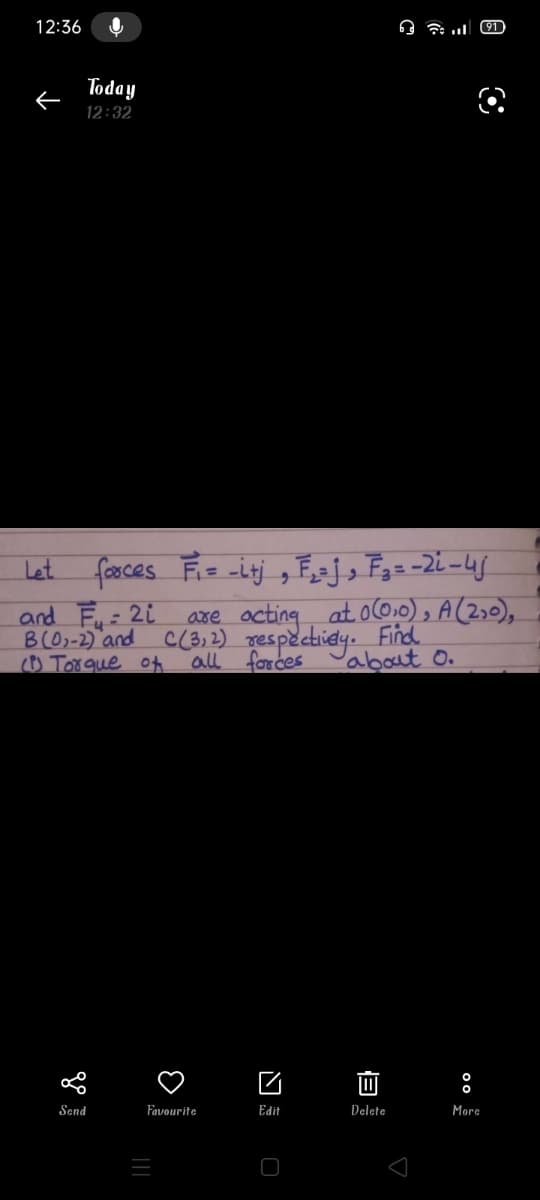 12:36
91
Today
12:32
Let forces F₁ = -i+j , F₂=j , F₃= -2i-4j
and F₄ = 2i are acting at O(0,0) , A(2,0),
B(0,-2) and C(3,2) respectively. Find
(i) Torque of all forces about O.
Send Favourite Edit Delete More